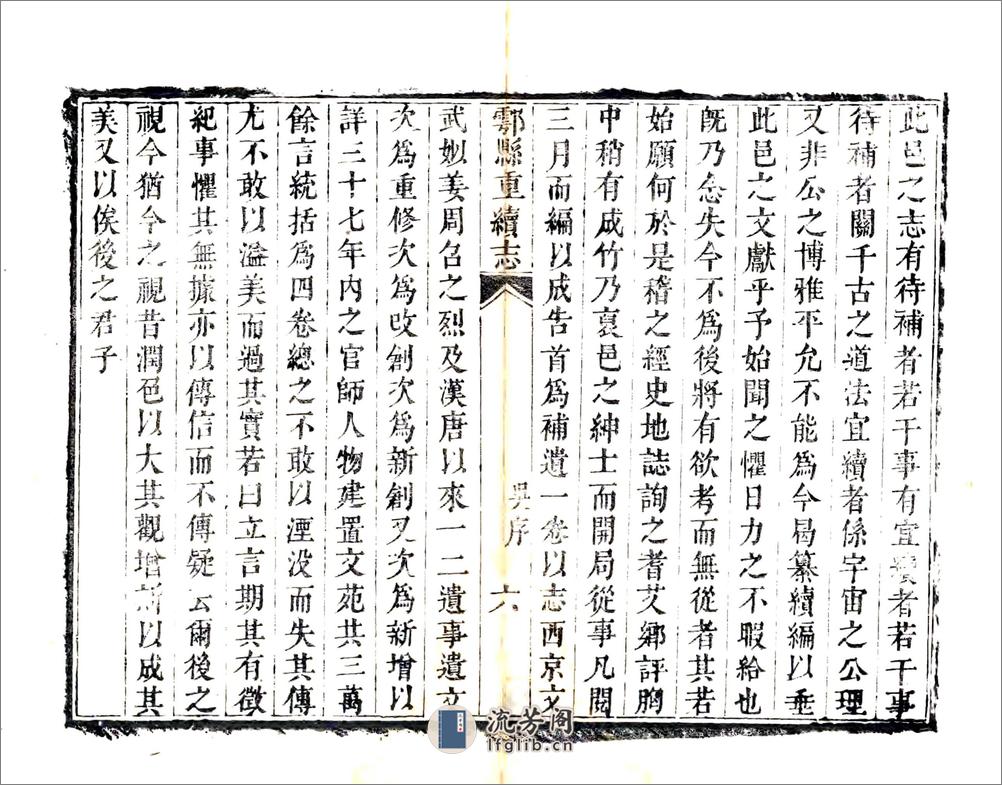 此邑之志有待補者若干事有宜續者若干事
待補者關千古之道法宜續者係宇宙之公理
又非公之博雅平允不能為今曷纂續編以垂
此邑之文獻乎予始聞之懼日力之不暇給也
既乃念失今不為後將有欲考而無從者其若
始願何於是稽之經史地誌詢之耆艾鄉評胸
中稍有成竹乃裒邑之紳士而開局從事凡閱
三月而編以成告首為補遺一卷以志西京文
鄠縣重續志
吳序
六
武姒姜周召之烈及漢唐以來一二遺事遺文
次為重修次為改創次為新創又次為新增以
詳三十七年內之官師人物建置文苑共三萬
餘言統括為四卷總之不敢以湮没而失其傳
尤不敢以溢美而過其實若曰立言期其有徵
紀事懼其無據亦以傳信而不傳疑云爾後之
視今猶今之視昔潤色以大其觀增新以成其
美又以俟後之君子
流芳阁
lfglib.cn